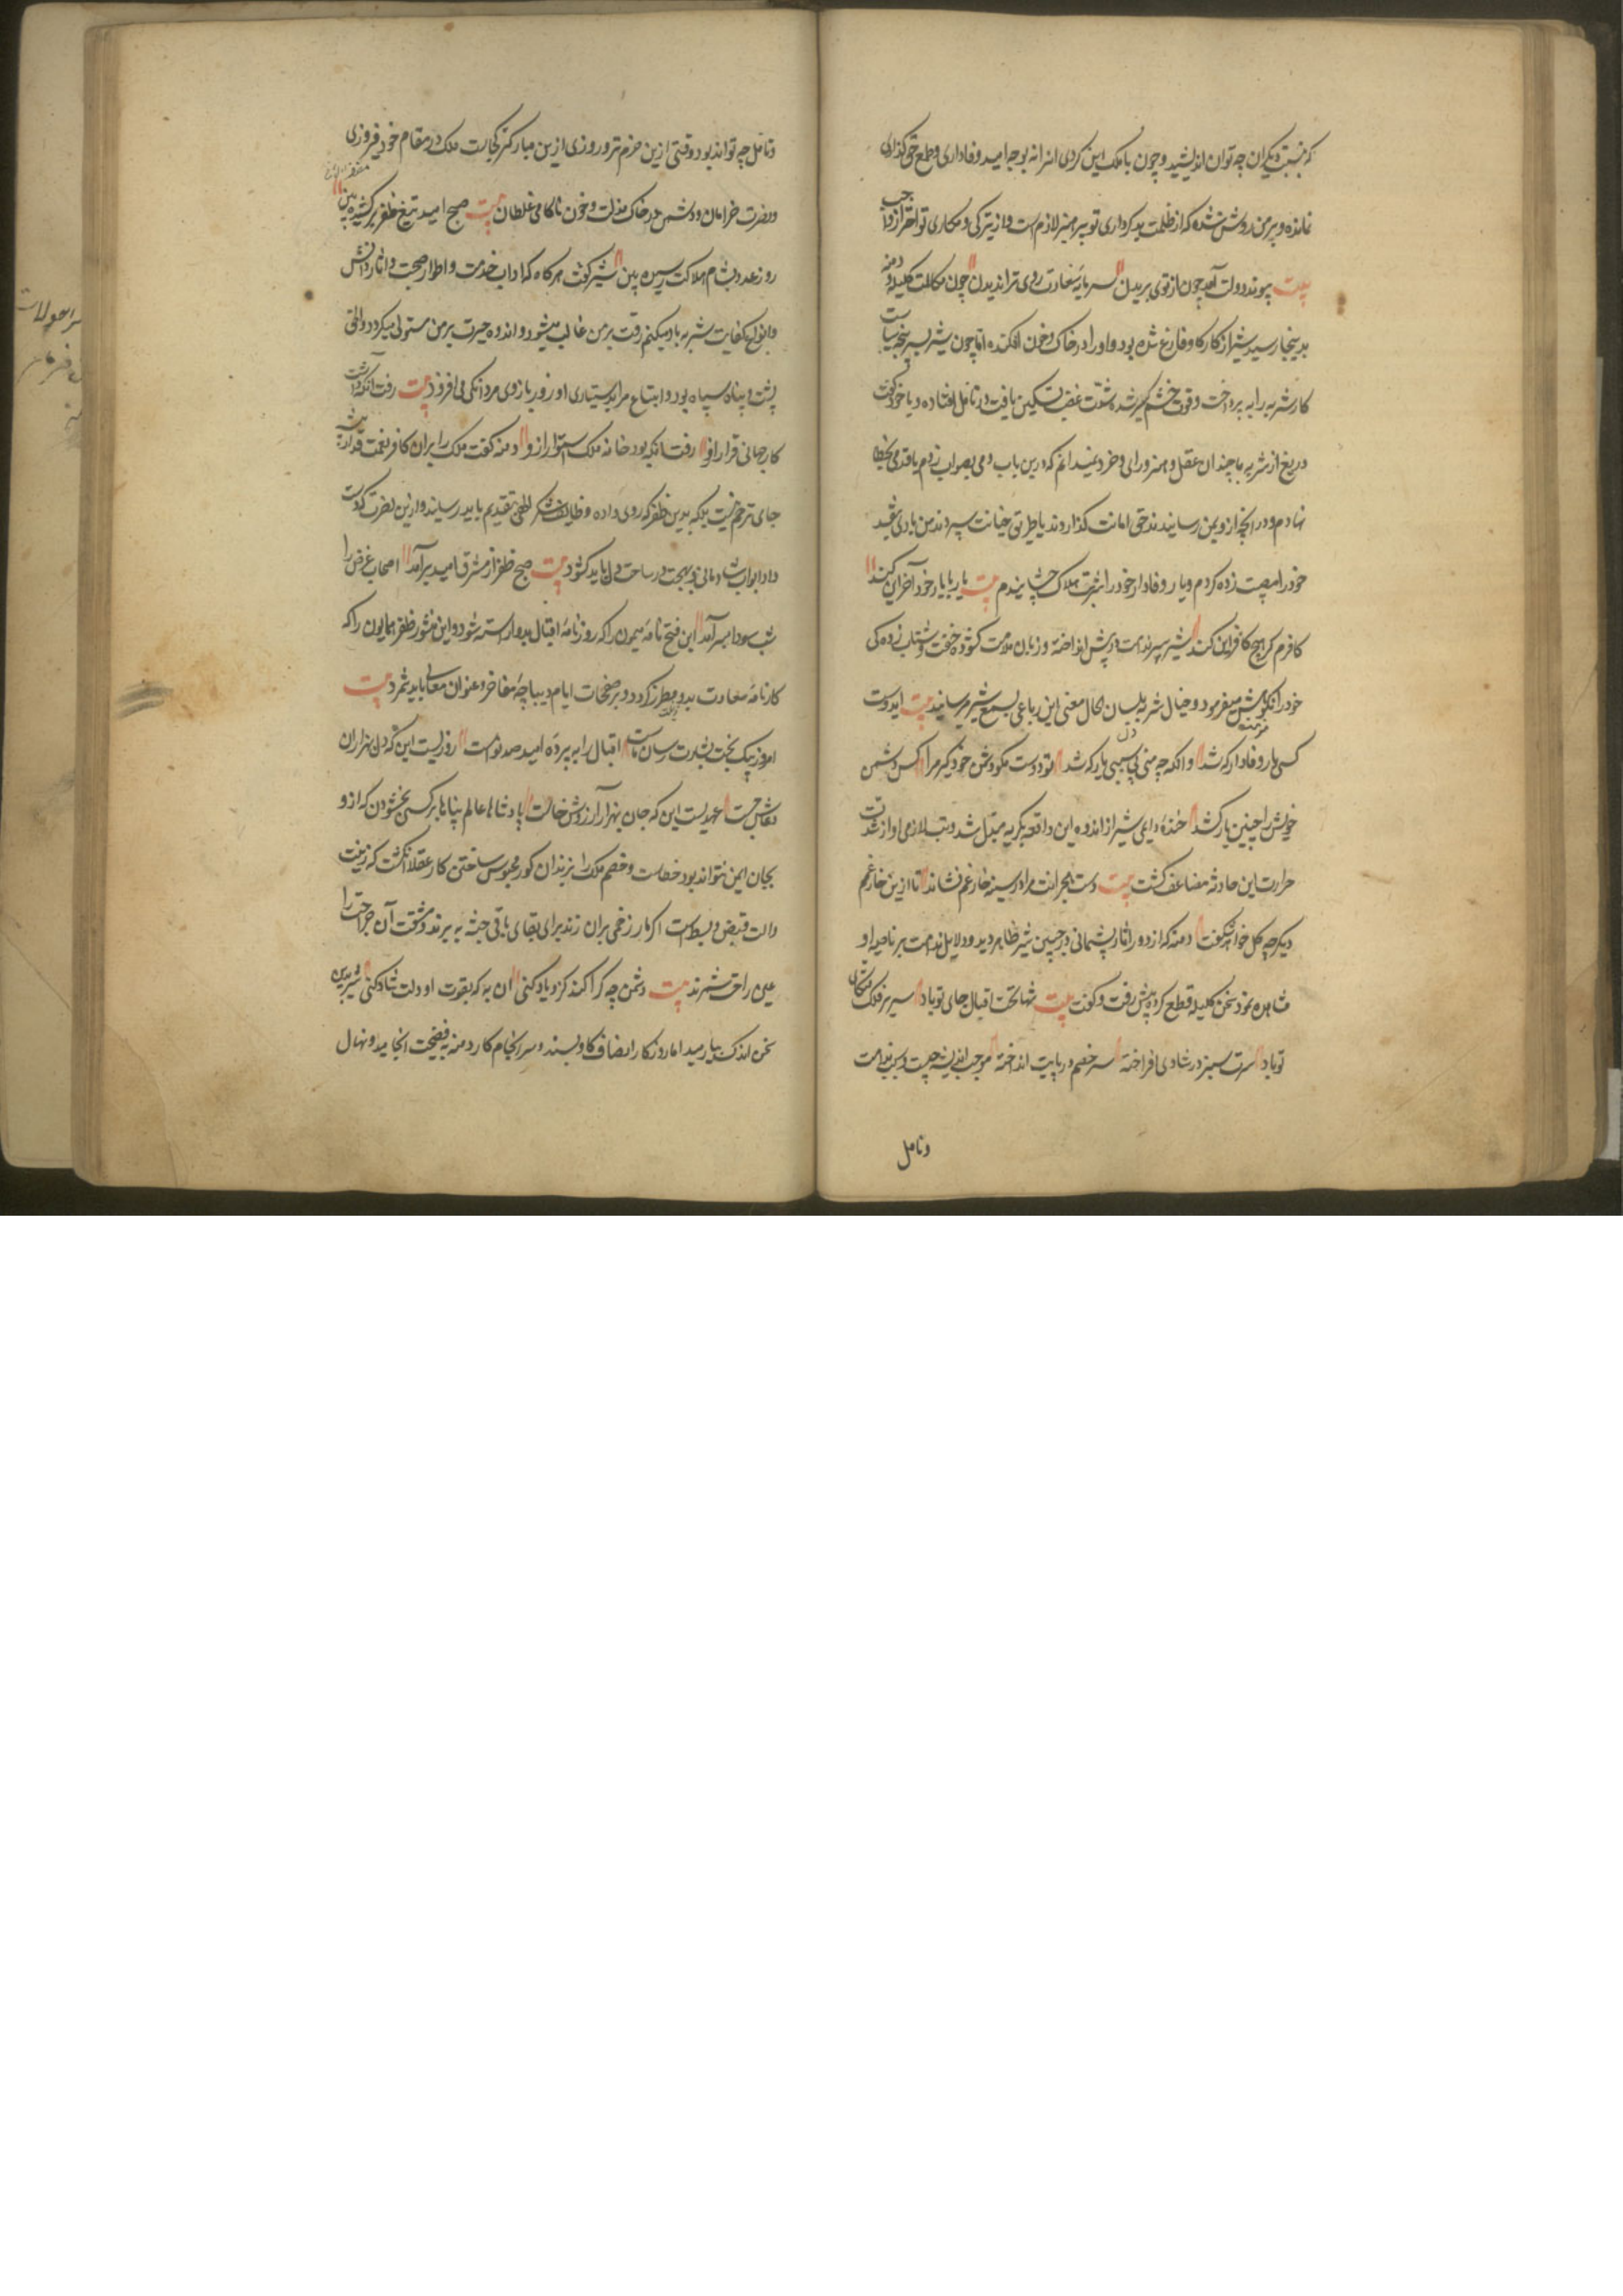 که نسبت دیگران چه توان اندیشید و چون با ملک این کردی دیگرانرا نه بوجه امید وفاداری و طمع حق گذاری
نمانده و بر من روشن شده که از ظلمت بد کرداری تو پرهیز لازم است و از تیرگی و مکاری تو احتراز واجب
بیت پیوند دولت آمد چون از توی بریدن سرمایه سعادت روی ترا ندیدن چون مکالمت کلیله و دمنه
بدینجا رسید شیر از کار گاو فارغ شده بود و او را در خاک و خون افکنده اما چون شیر بسر پنجه سیاست
کار شنزبه را بپرداخت و قوت خشم کمتر شد و سورت غضب تسکین یافت در تامل افتاده و با خود گفت
دریغ از شنزبه با چندان عقل و هنر و رای و خرد نمیدانم که درین باب دمی بصواب زدم یا قدمی بخطا
نهادم و در آنچه ازو بمن رسانیدند حق امانت گذاردند یا طریق خیانت سپردند من باری بنقد
خود را مصیبت زده کردم و یار وفادار خود را شربت هلاک چشانیدم بیت یار با یار خود آخر این کند
کافرم گر هیچ کافر این کند شیر سر ندامت در پیش انداخته و زبان ملامت گشوده خفت و شتاب زدگی
خود را نکوهش میفرمود و خیال شنزبه بلسان حال معنی این رباعی بسمع شیر میرسانید بیت ای دوست
کسی یار وفادار کشد وانگه چو منی بی سببی یار کشد تو دوست مگو دشمن خود گیر مرا کس دشمن
خویش را چنین یار کشد خنده واعی شیر از اندوه این واقعه بگریه مبدل شد و تب لازمی او از شدت
حرارت این حادثه مضاعف گشت بیت دست هجرانت مرا در سینه خار غم نشاند تا ازین خار غم
دیگر چه گل خواهد شگفت دمنه که از دور آثار پشیمانی در جبین شیر ظاهر دید و دلایل ندامت بر ناصیه او
مشاهده نمود سخن کلیله قطع کرده پیش رفت و گفت بیت شها تخت اقبال جای تو باد سریر فلک متکای
تو باد سرت سبز در شادی افراخته سر خصم در پایت انداخته موجب اندیشه چیست و سبب ندامت
و تامل
و تامل چه تواند بود وقتی ازین خرم تر و روزی ازین مبارکتر کجاست ملک در مقام خود فیروزی
و نصرت خرامان و دشمن در خاک مذلت و خون ناکامی غلطان بیت صبح امید تیغ ظفر برکشیده بین
روز عدو بشام هلاکت رسیده بین شیر گفت هر گاه که آداب خدمت و اطوار صحبت و آثار دانش
و انواع کفایت شنزبه یاد میکنم رقت بر من غالب میشود و اندوه حیرت بر من مستولی میگردد و الحق
پشت و پناه سپاه بود و اتباع مرا بدستیاری او زور بازوی مردانگی می افزود بیت رفت آنکه داشت
کار جهانی قرار ازو رفت آنکه بود خانه ملک استوار ازو دمنه گفت ملک را بران کافر نعمت غدار پیشه
جای ترحم نیست بلکه بدین ظفر که روی داده وظایف شکر الهی بتقدیم باید رسانید و ازین نصرت که دست
داد ابواب شادمانی و بهجت در ساحت دل باید گشود بیت صبح ظفر از مشرق امید برآمد اصحاب غرض را
شب سودا بسر آمد این فتح نامه میمون را که روزنامه اقبال بدو آراسته شود و این منشور ظفر همایون را که
کارنامه سعادت بدو مطرز گردد بر صفحات ایام دیباچه مفاخر و عنوان معالی باید شمرد بیت
امروز پیک بخت بشارت رسان ماست اقبال را به پرده امید صد نواست روزیست این که دل بهزاران
نقاش جست عهدیست این که جان بهزار آرزوش خواست پادشاها عالم پناها بر کسی بخشودن که ازو
بجان ایمن نتواند بود خطاست و خصم ملک را بزندان گور محبوس ساختن کار عقلا انگشت که زینت
دست و آلت قبض و بسط است اگر مار زخمی بران زند برای بقای باقی جثه ببرند و مشقت آن جراحت را
عین راحت شمرند بیت دشمن چه کرا کند کزو یاد کنی آن به که بقوت او دلت شاد کنی شیر بدین
سخن اندک بیارمید اما روزگار انصاف گاو بستد و سرانجام کار دمنه بفضیحت انجامید و نهال